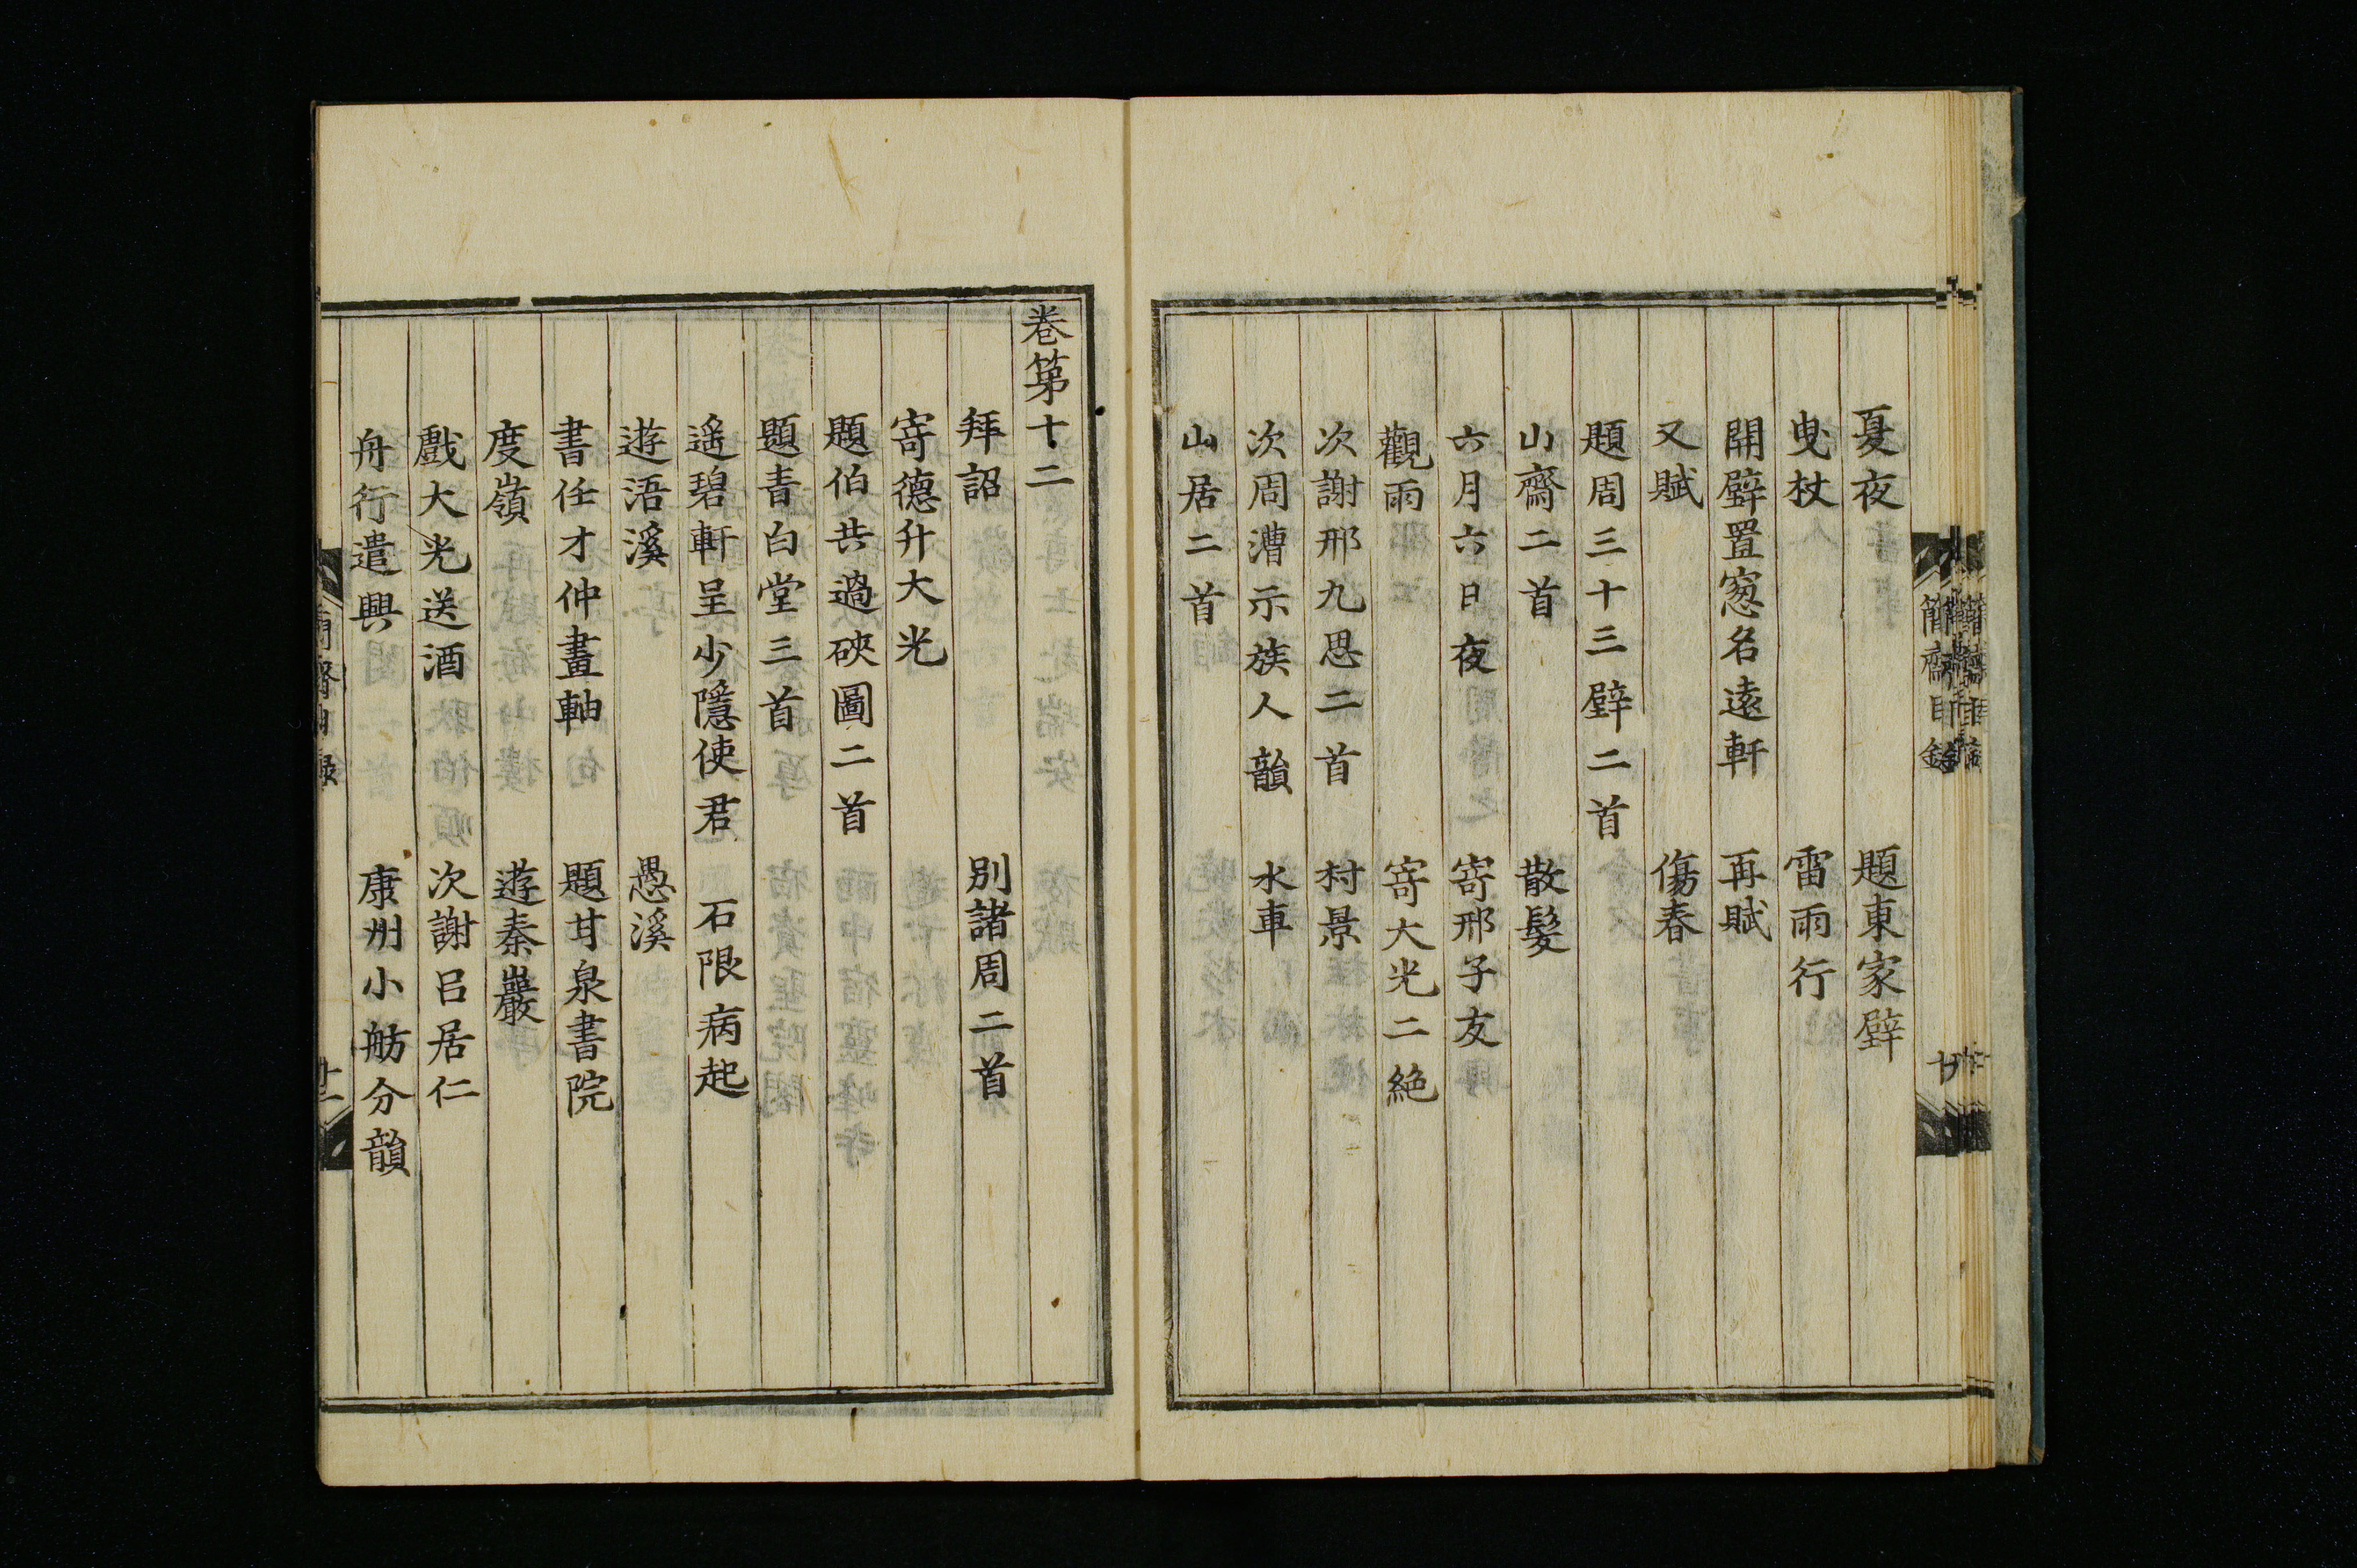 夏夜 題東家壁
曳杖 雷雨行
開壁置窓名遠軒 再賦
又賦 傷春
題周三十三壁二首
山齋二首 散髮
六月六日夜 寄邢子友
觀雨 寄大光二絶
次謝邢九思二首 村景
次周漕示族人韻 水車
山居二首
卷第十二
拜詔 別諸周二首
寄德升大光
題伯共過硤圖二首
題青白堂三首
遥碧軒呈少隱使君 石限病起
遊浯溪 愚溪
書任才仲畫軸 題甘泉書院
度嶺 遊秦巖
戲大光送酒 次謝呂居仁
舟行遣興 康州小舫分韻